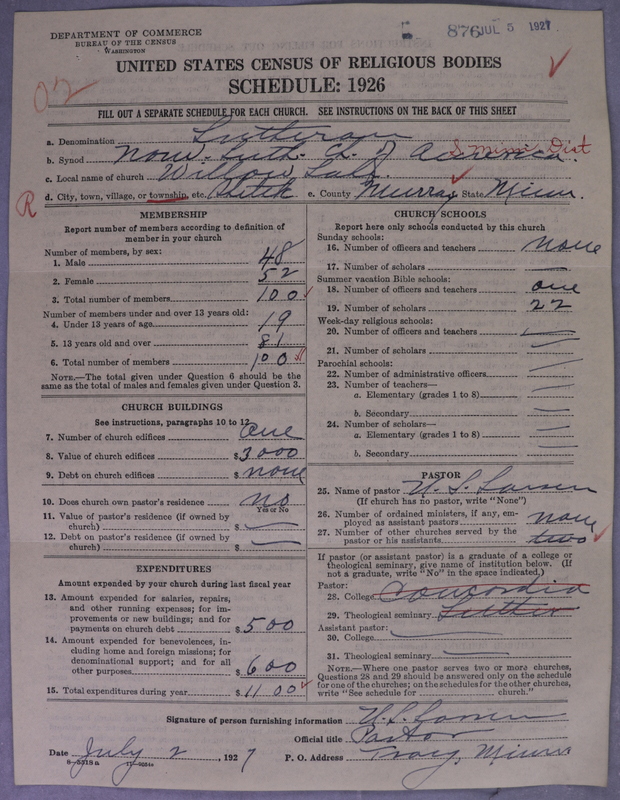 DEPARTMENT OF COMMERCE
BUREAU OF THE CENSUS
WASHINGTON
876 JUL 5 1927
UNITED STATES CENSUS OF RELIGIOUS BODIES
SCHEDULE: 1926
FILL OUT A SEPARATE SCHEDULE FOR EACH CHURCH. SEE INSTRUCTIONS ON THE BACK OF THIS SHEET
a. Denomination Lutheran
b. Synod Norw. Luth. Ch. of America. S. Minn. Dist
c. Local name of church Willow Lake
d. City, town, village, or township, etc. Shetek e. County Murray State Minn.
R
MEMBERSHIP
Report number of members according to definition of
member in your church
Number of members, by sex:
1. Male 48
2. Female 52
3. Total number of members 100
Number of members under and over 13 years old:
4. Under 13 years of age 19
5. 13 years old and over 81
6. Total number of members 100
NOTE.—The total given under Question 6 should be
same as the total of males and females given under Question 3.
CHURCH BUILDINGS
See instructions, paragraphs 10 to 12
7. Number of church edifices one
8. Value of church edifices $3000
9. Debt on church edifices $none
10. Does church own pastor's residence no
Yes or No
11. Value of pastor's residence (if owned by
church) $ —
12. Debt on pastor's residence (if owned by
church) $ —
EXPENDITURES
Amount expended by your church during last fiscal year
13. Amount expended for salaries, repairs,
and other running expenses; for im-
provements or new buildings; and for
payments on church debt $500
14. Amount expended for benevolences, in-
cluding home and foreign missions; for
denominational support; and for all
other purposes $600
15. Total expenditures during year $1100
CHURCH SCHOOLS
Report here only schools conducted by this church
Sunday schools:
16. Number of officers and teachers none
17. Number of scholars —
Summer vacation Bible schools:
18. Number of officers and teachers one
19. Number of scholars 22
Week-day religious schools:
20. Number of officers and teachers —
21. Number of scholars —
Parochial schools:
22. Number of administrative officers —
23. Number of teachers—
a. Elementary (grades 1 to 8) —
b. Secondary —
24. Number of scholars—
a. Elementary (grades 1 to 8) —
b. Secondary —
PASTOR
25. Name of pastor U. S. Larsen
(If church has no pastor, write "None")
26. Number of ordained ministers, if any, em-
ployed as assistant pastors none
27. Number of other churches served by the
pastor or his assistants two
If pastor (or assistant pastor) is a graduate of a college or
theological seminary, give name of institution below. (If
not a graduate, write "No" in the space indicated.)
Pastor:
28. College Concordia
29. Theological seminary Luther
Assistant pastor:
30. College —
31. Theological seminary —
NOTE.—Where one pastor serves two or more churches,
Questions 28 and 29 should be answered only on the schedule
for one of the churches; on the schedules for the other churches,
write "See schedule for church."
Signature of person furnishing information U. S. Larsen
Official title Pastor
Date July 2, 1927 P. O. Address Tracy, Minn
8—5318a